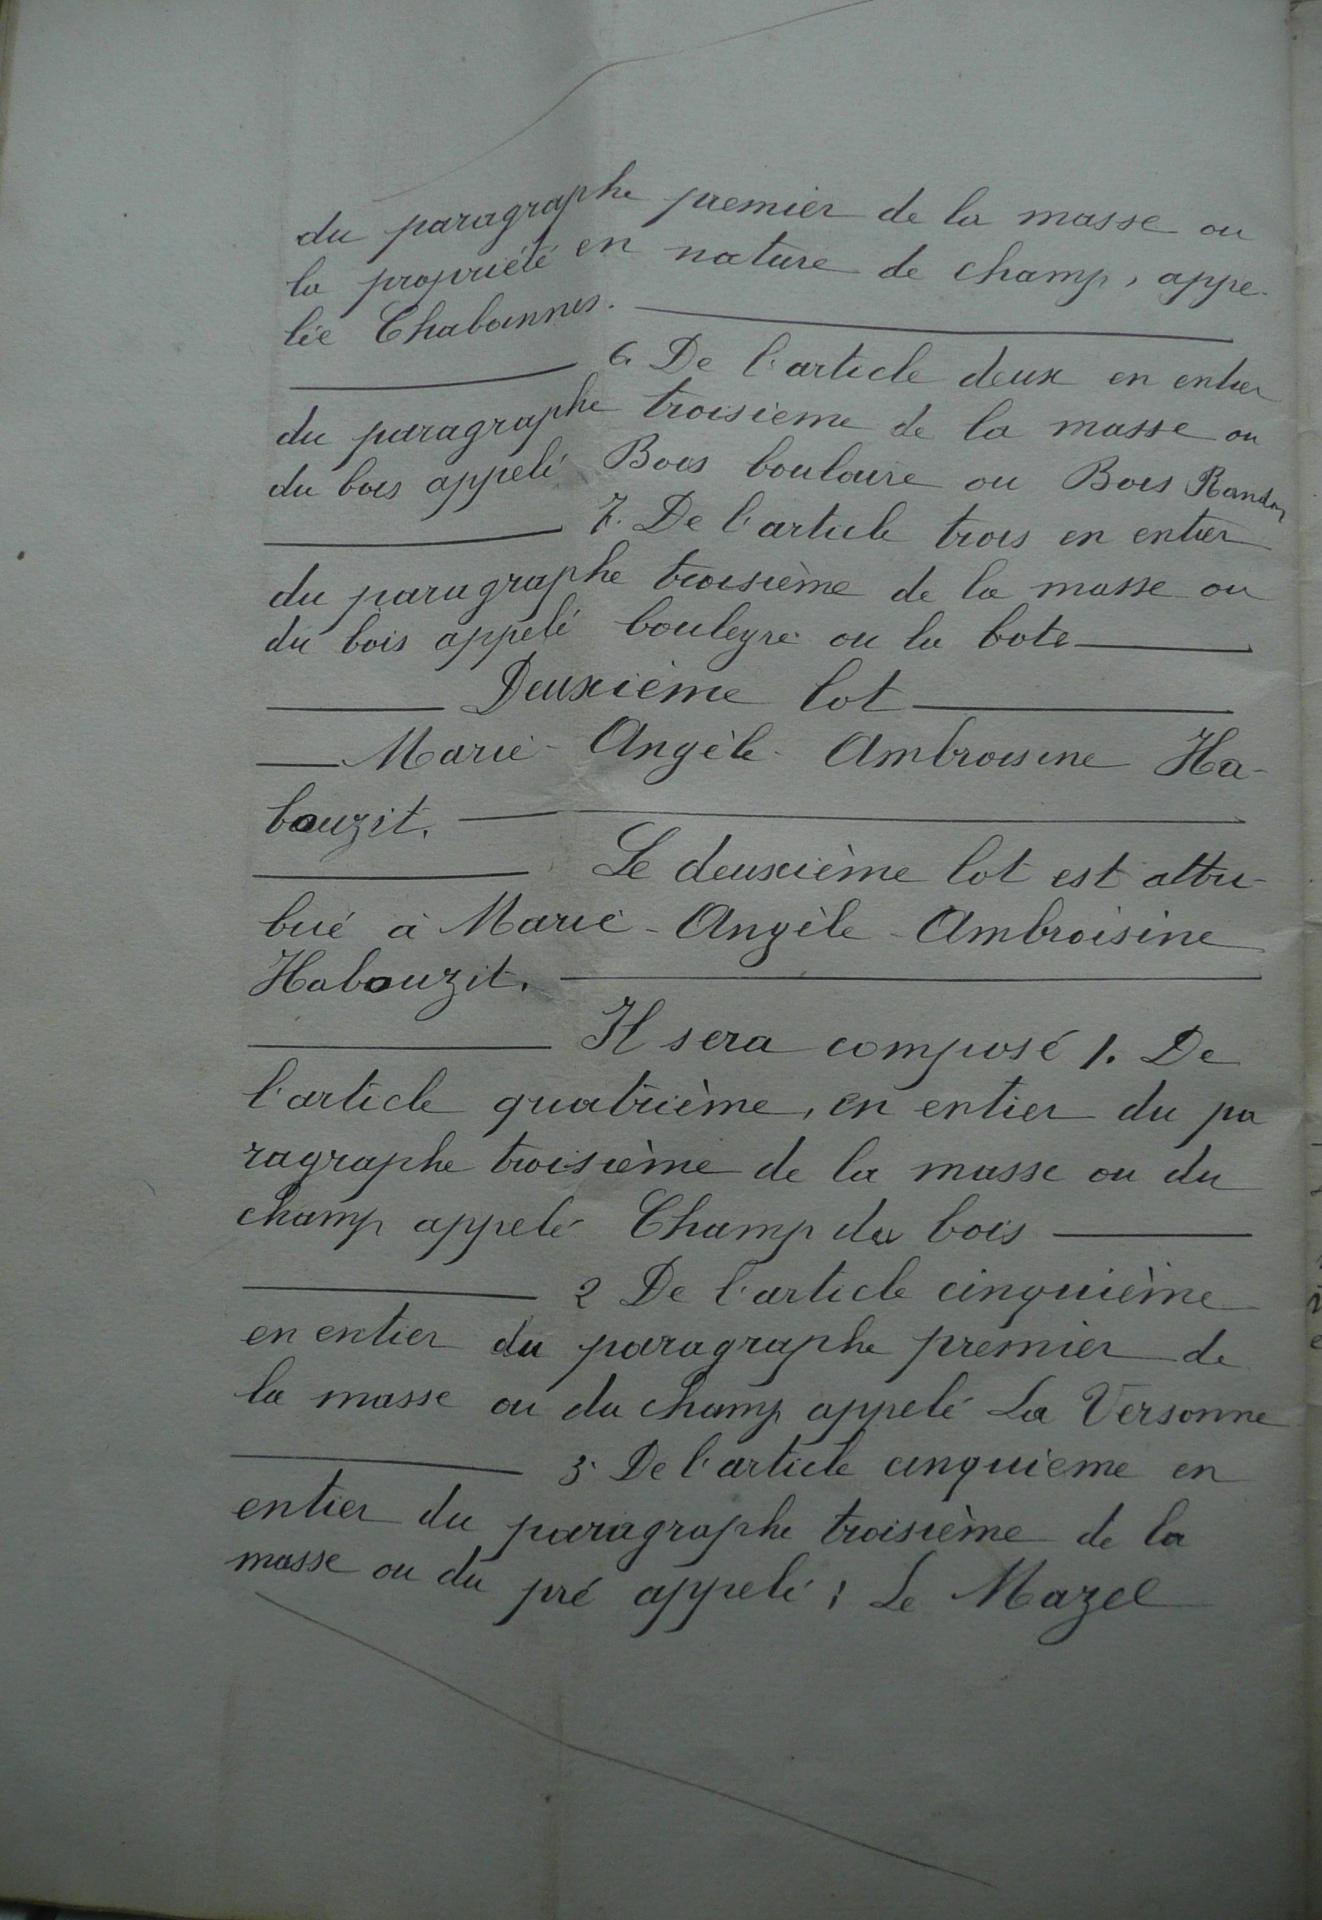 du paragraphe premier de la masse ou
la propriété en nature de champ, appe-
lée Chabannes.
6. De l'article deux en entier
du paragraphe troisième de la masse ou
du bois appelé Bois boulaire ou Bois Randon
7. De l'article trois en entier
du paragraphe troisième de la masse ou
du bois appelé bouleyre ou la bote
Deuxième lot
Marie-Angèle-Ambroisine Ha-
bouzit.
Le deuxième lot est attri-
bué à Marie-Angèle-Ambroisine
Habouzit.
Il sera composé 1. De
l'article quatrième, en entier du pa
ragraphe troisième de la masse ou du
champ appelé Champ du bois
2 De l'article cinquième
en entier du paragraphe premier de
la masse ou du champ appelé La Versonne
3. De l'article cinquième en
entier du paragraphe troisième de la
masse ou du pré appelé; Le Mazel